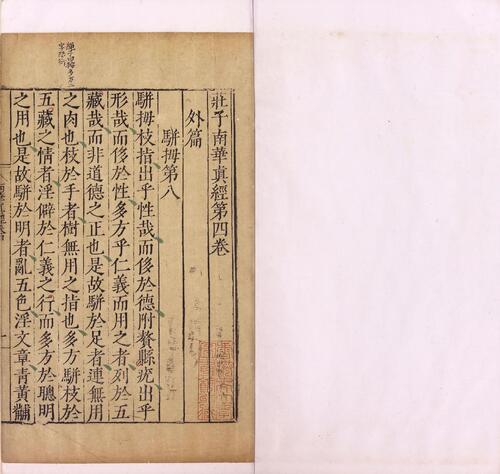 莊子南華真經第四卷
外篇
駢拇第八
駢拇枝指出乎性哉而侈於德附贅縣疣出乎
形哉而侈於性多方乎仁義而用之者列於五
藏哉而非道德之正也是故駢於足者連無用
之肉也枝於手者樹無用之指也多方駢枝於
五藏之情者淫僻於仁義之行而多方於聰明
之用也是故駢於明者亂五色淫文章青黃黼